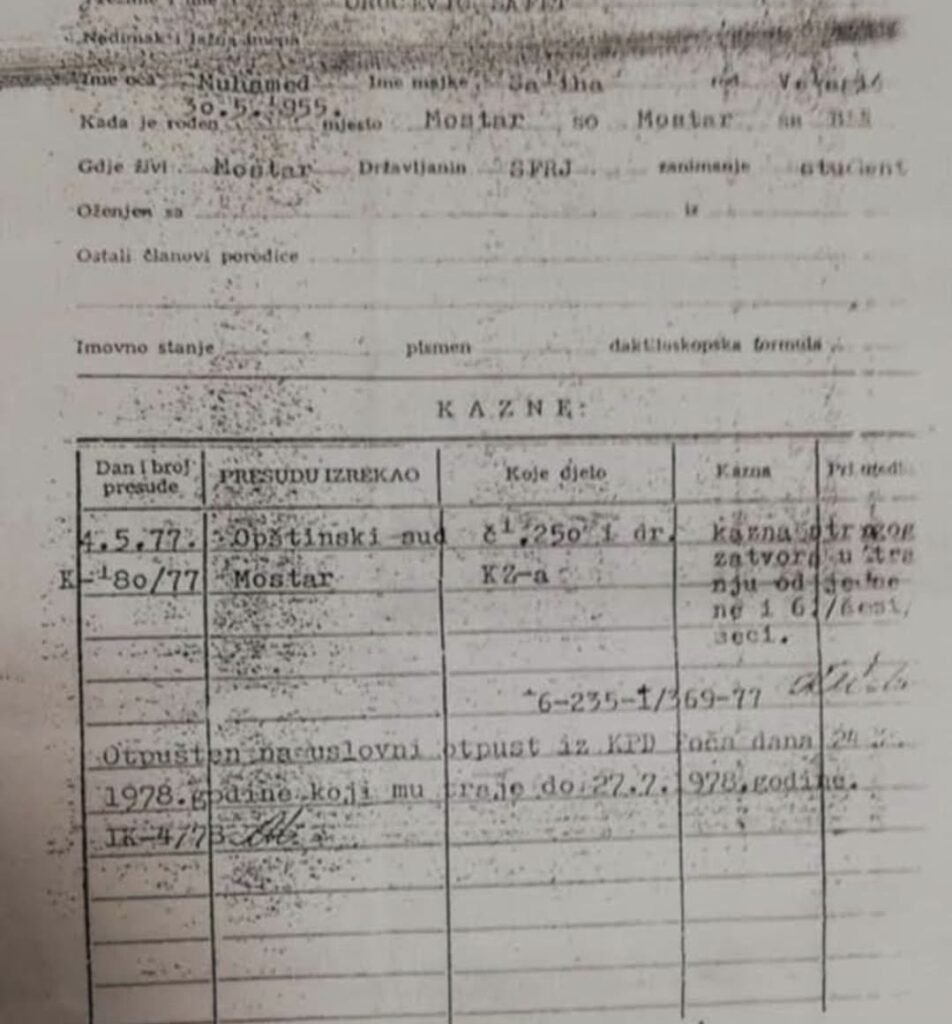 Nadimak i lažna imena
Ime oca Muhamed Ime majke Saliha rođ
30.5.1955.
Kada je rođen mjesto Mostar so Mostar sr BiH
Gdje živi Mostar Državljanin SFRJ zanimanje student
Oženjen sa iz
Ostali članovi porodice
Imovno stanje pismen daktiloskopska formula
KAZNE:
Dan i broj presude PRESUDU IZREKAO Koje djelo Kazna
4.5.77. Opštinski sud čl.250 i dr. kazna strogog
K-180/77 Mostar KZ-a zatvora u tra
nju od jedne
ne i 6
seci.
6-235-1/369-77
Otpušten na uslovni otpust iz KPD Foča dana 24
1978.godine koji mu traje do 27.7.1978.godine.
IK-4/78